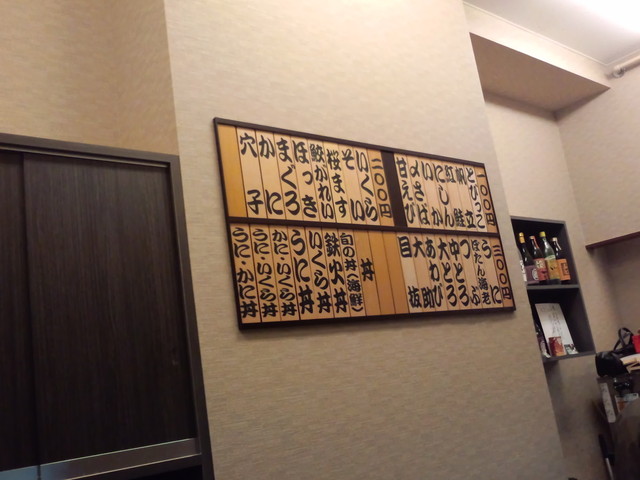 一〇〇円
とびっこ
帆立
紅鮭
にしん
いか
〆さば
甘えび
二〇〇円
いくら
そい
桜ます
鮫かれい
ほっき
まぐろ
かに
穴子
三〇〇円
うに
ぼたん海老
つぶ
中とろ
大とろ
あわび
大助
目抜
丼
旬の丼(海鮮)
鉄火丼
いくら丼
うに丼
かに・いくら丼
うに・いくら丼
うに・かに丼